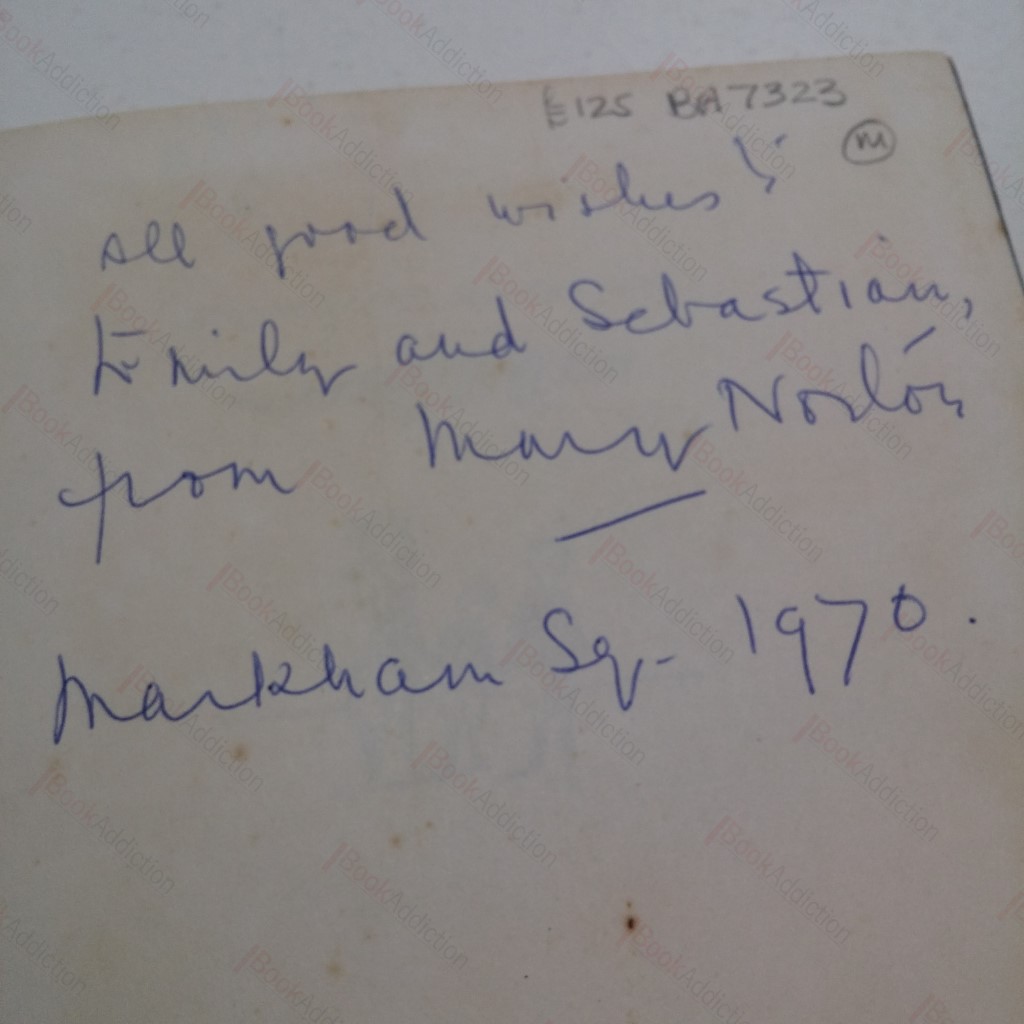 £125 BA7323
M
All good wishes!
Emily and Sebastian,
from Mary Norton
Markham Sq. 1970.